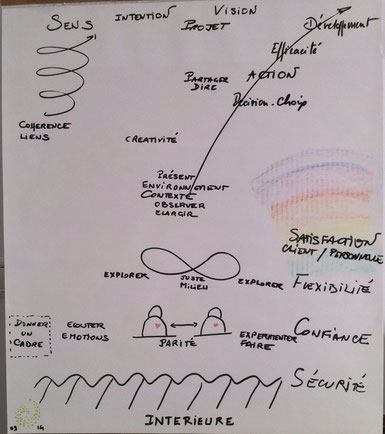 SENS
INTENTION
VISION
PROJET
Développement
Efficacité
PARTAGER
DIRE
ACTION
Décision - Choix
COHERENCE
LIENS
CREATIVITÉ
PRÉSENT
ENVIRONNEMENT
CONTEXTE
OBSERVER
ELARGIR
SATISFACTION
CLIENT / PERSONNELLE
EXPLORER
JUSTE
MILIEU
EXPLORER
FLEXIBILITÉ
DONNER
UN
CADRE
ECOUTER
EMOTIONS
PARITÉ
EXPERIMENTER
FAIRE
CONFIANCE
SÉCURITÉ
INTERIEURE
03 14